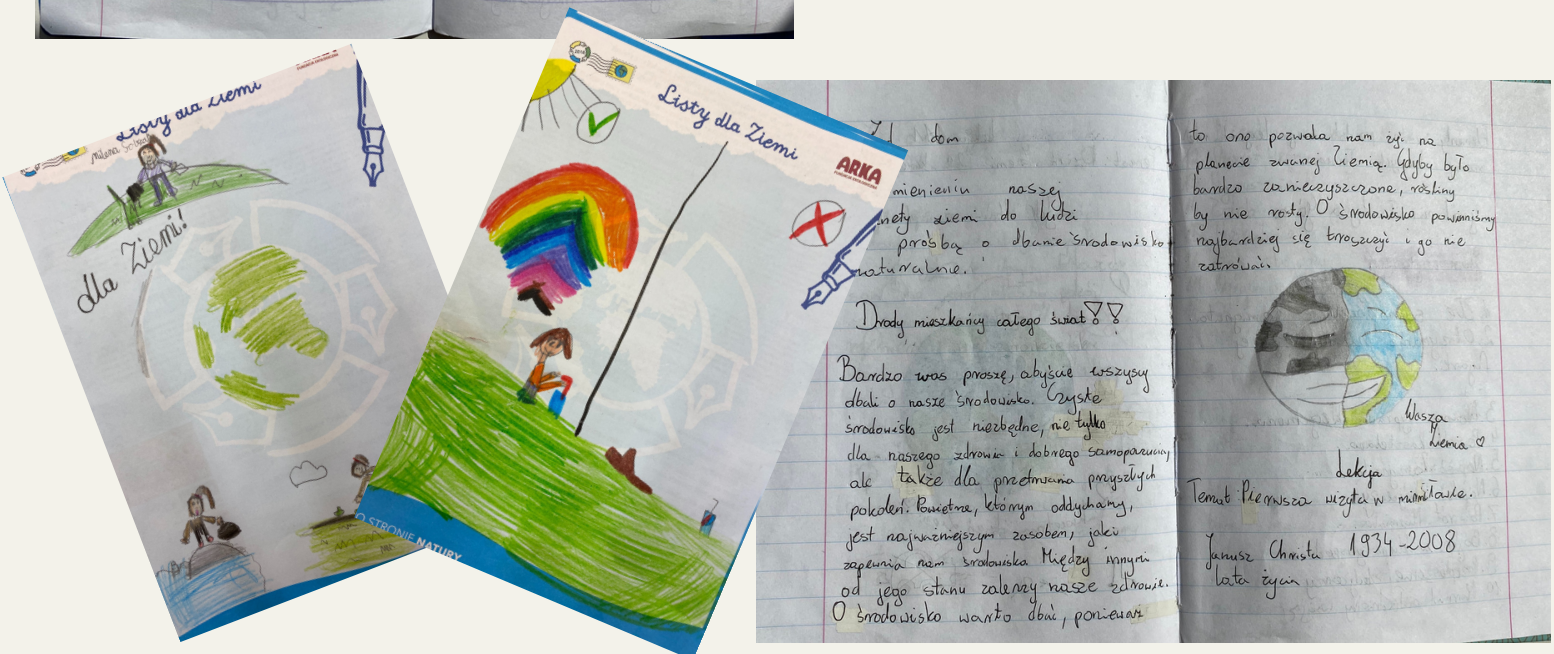 Listy dla Ziemi
dla Ziemi!
O STRONIE NATURY
Listy dla Ziemi
ARKA
FUNDACJA EKOLOGICZNA
dom
mienieniu naszej
nety ziemi do ludzi
prośbą o dbanie środowisko
naturalne.
Drody mieszkańcy całego świat
Bardzo was proszę, abyście wszyscy
dbali o nasze środowisko. Czyste
środowisko jest niezbędne, nie tylko
dla naszego zdrowia i dobrego samopoczucia,
ale także dla przetrwania przyszłych
pokoleń. Powietrze, którym oddychamy,
jest najważniejszym zasobem, jaki
zapewnia nam środowisko Między innymi
od jego stanu zależy nasze zdrowie.
O środowisko warto dbać, ponieważ
to ono pozwala nam żyć na
planecie zwanej Ziemią. Gdyby było
bardzo zanieczyszczone, rośliny
by nie rosły. O środowisko powinniśmy
najbardziej się troszczyć i go nie
zatruwać.
Wasza
Ziemia
Lekcja
Temat Pierwsza wizyta w
Janusz Christa 1934-2008
lata życia